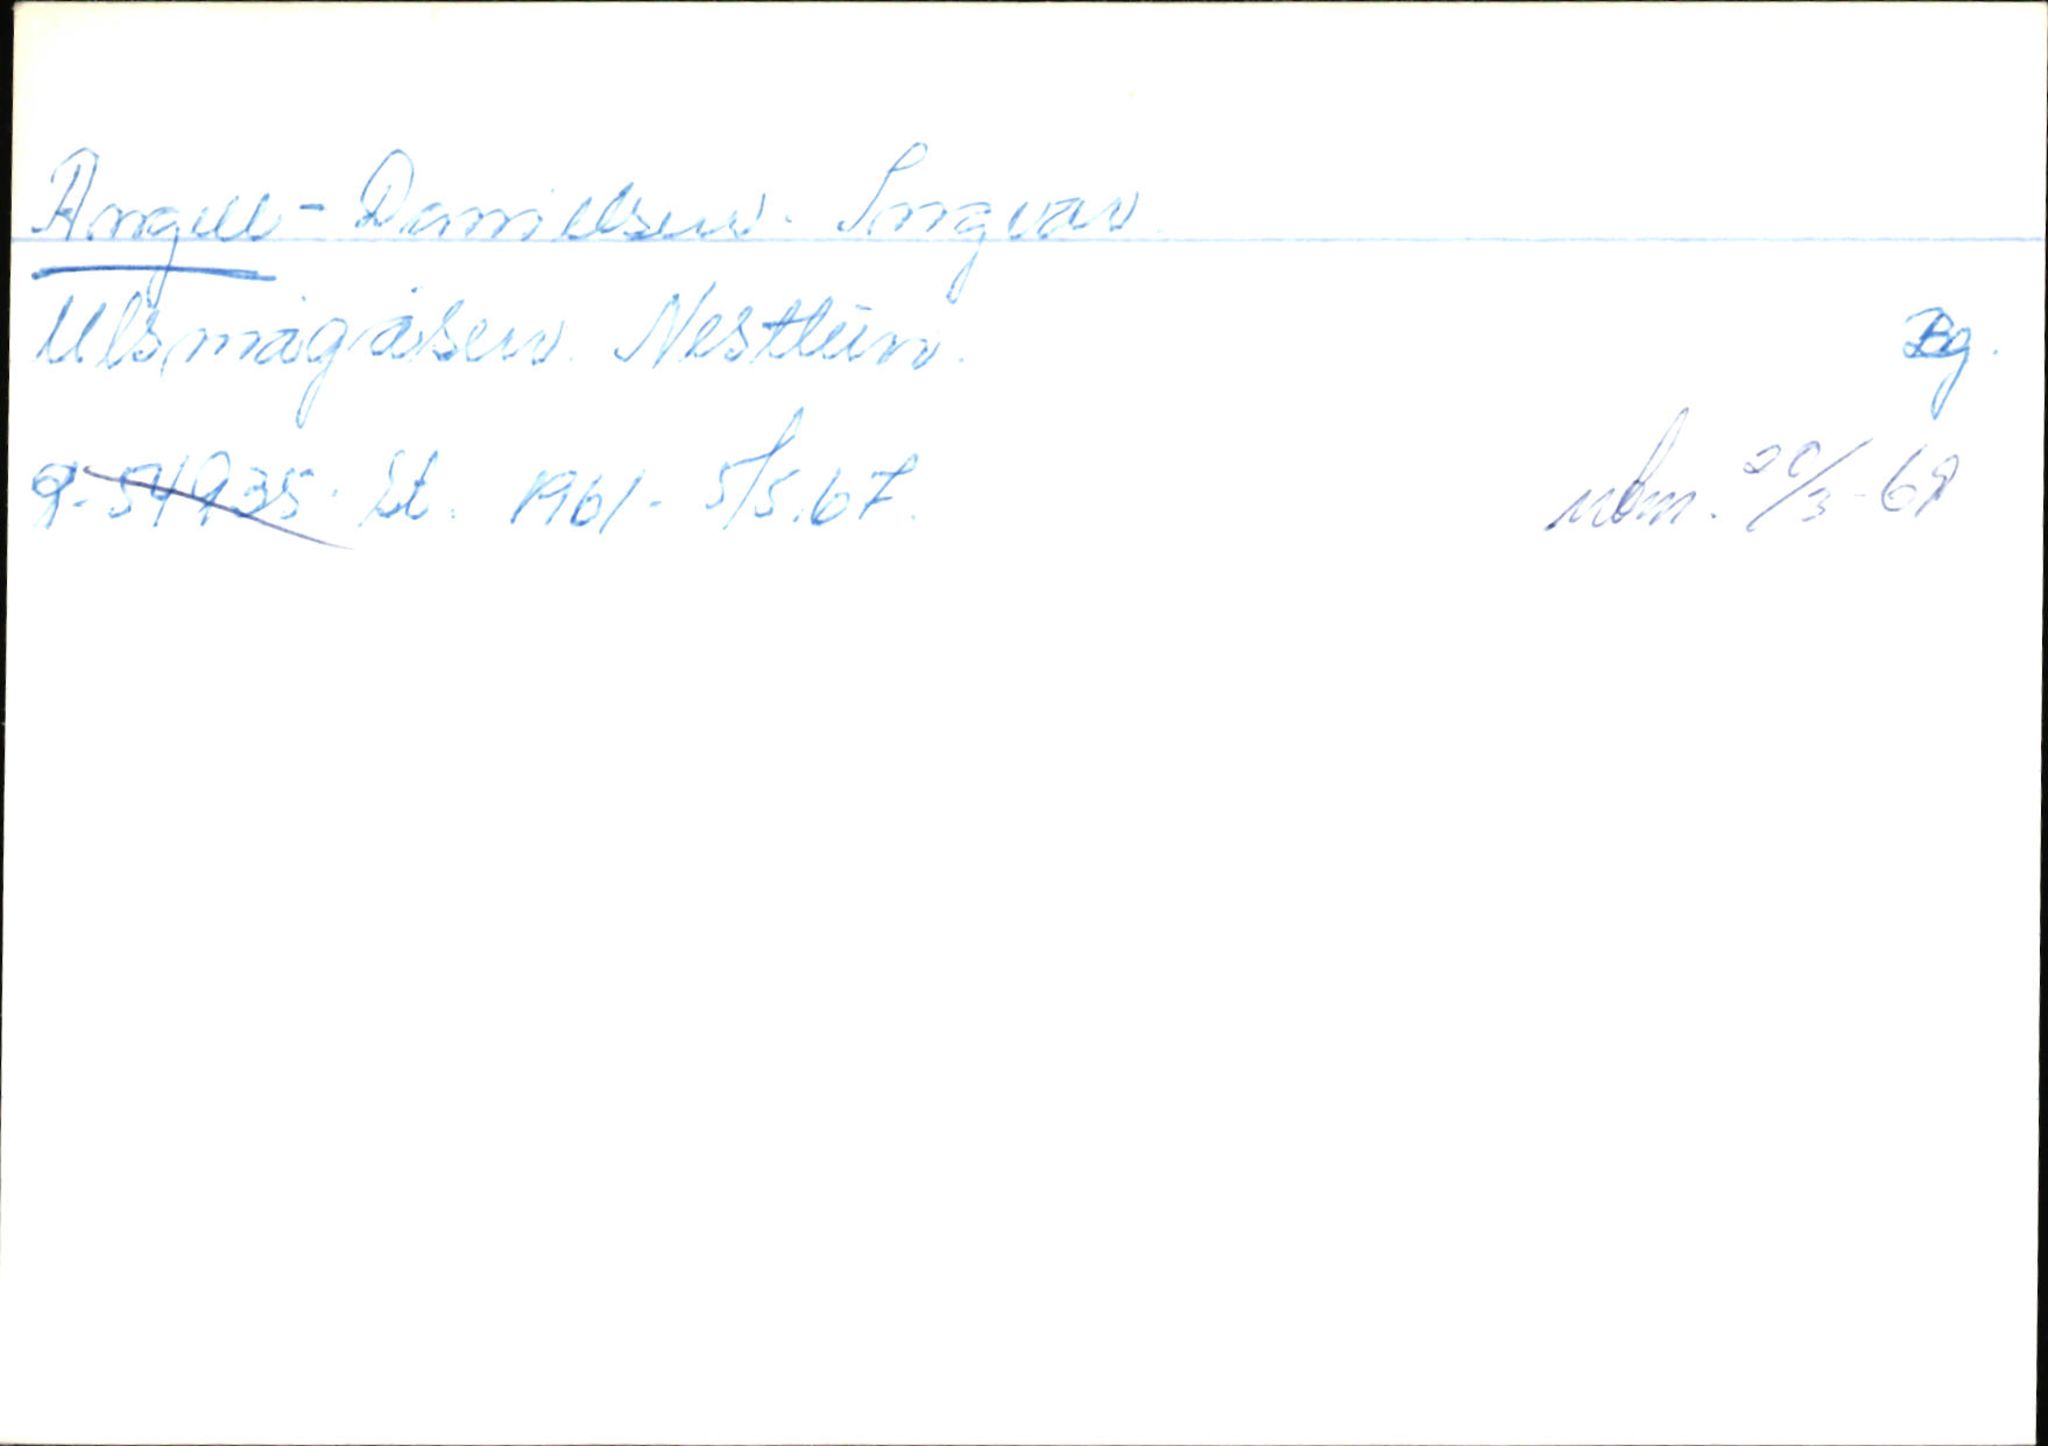 Angell - Danielsen. Ingvar.
Ulsmågåsen. Nesttun.
Bg.
R-54935. St. 1961 - 5/5.67.
ubm. 20/3-69